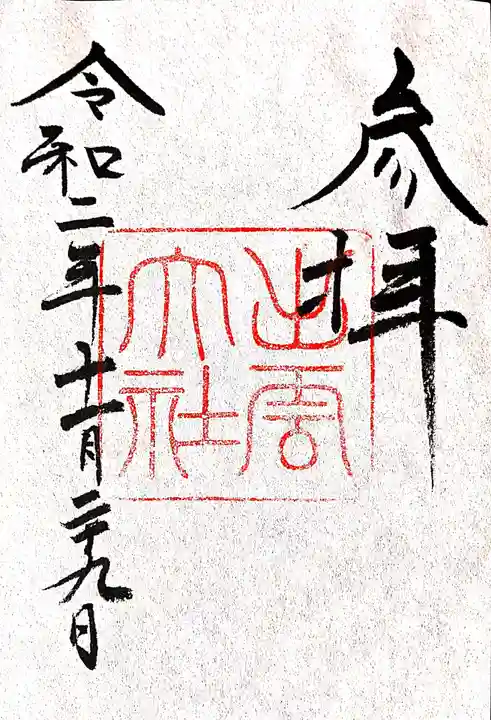 参拝
出雲
大社
令和二年十一月二十九日